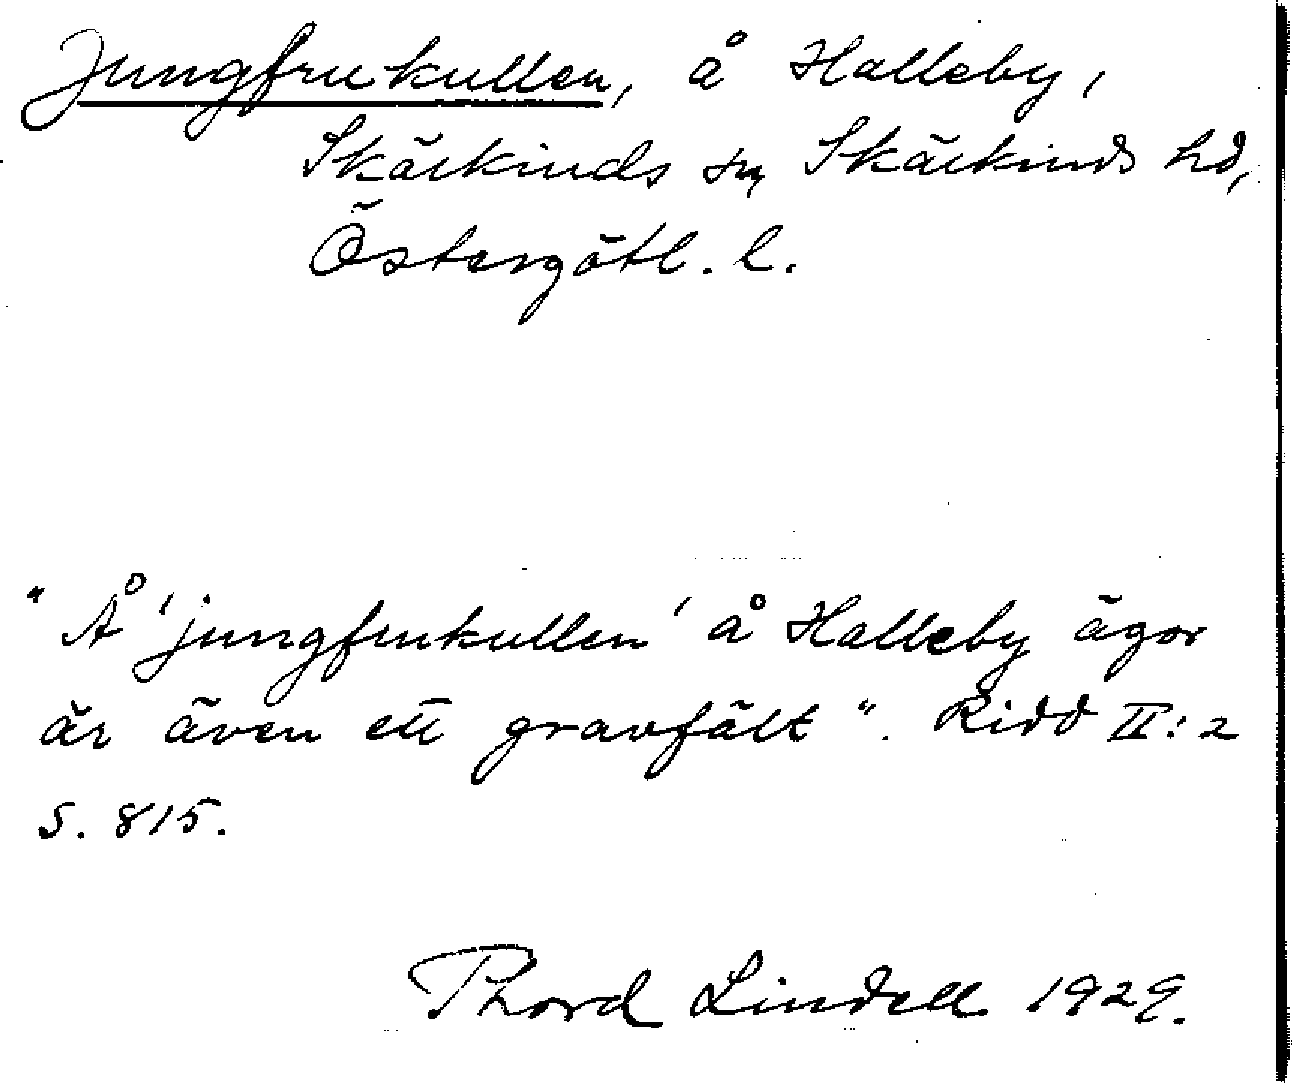 Jungfrukullen, å Halleby,
Skärkinds sn, Skärkinds hd,
Östergötl. l.
"Å 'jungfrukullen' å Halleby ägor
är även ett gravfält". Ridd II:2
s. 815.
Thord Lindell 1929.